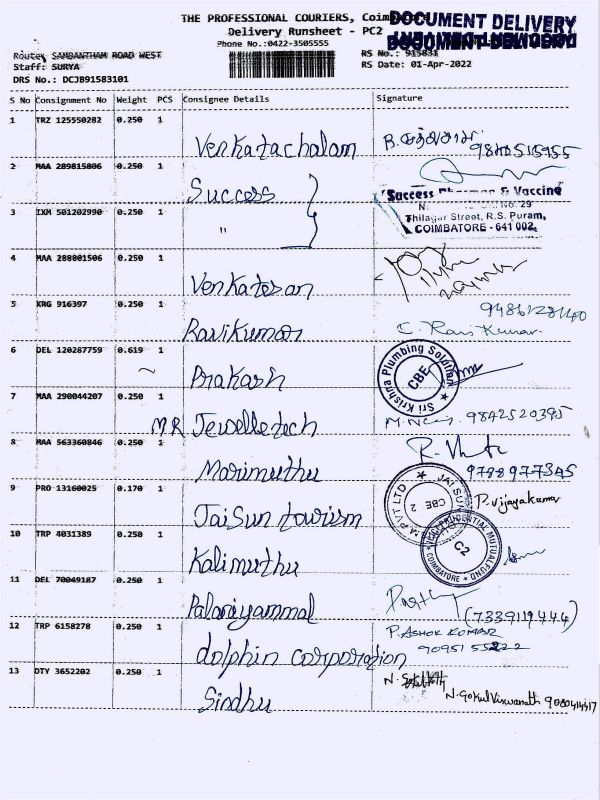 THE PROFESSIONAL COURIERS, Coimbatore
DOCUMENT DELIVERY
Delivery Runsheet - PC2
Phone No.:0422-3505555
Route: SAMBANTHAM ROAD WEST
RS No.: 915831
Staff: SURYA
RS Date: 01-Apr-2022
DRS No.: DCJB91583101
S No Consignment No Weight PCS Consignee Details Signature
1 TRZ 125550282 0.250 1 Venkatachalam
2 MAA 289815806 0.250 1 Success
Success Pharma & Vaccine
3 IXM 501202990 0.250 1 "
Thilagar Street, R.S. Puram,
COIMBATORE - 641 002.
4 MAA 288801506 0.250 1 Venkatesan
5 KRG 916397 0.250 1 Ravikumar C. Ravi Kumar
6 DEL 120287759 0.619 1 Prakash
Sri Krishna Plumbing Solution CBE
7 MAA 290044207 0.250 1 MR Jewelletech 9842520395
8 MAA 563360846 0.250 1 Marimuthu
9788977345
9 PRO 13160025 0.170 1 Jaisun tourism P. Vijayakumar
10 TRP 4031389 0.250 1 Kalimuthu
11 DEL 70049187 0.250 1 Palaniyammal
(7339119444)
12 TRP 6158278 0.250 1 dolphin corporation P. ASHOK KUMAR
13 DTY 3652202 0.250 1 Sindhu
N. Gokul Viswanath